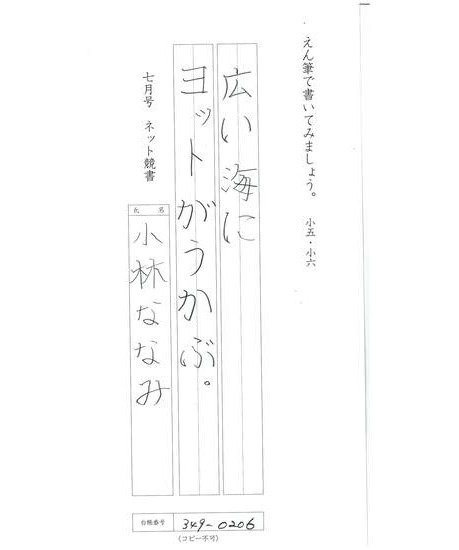 えん筆で書いてみましょう。 小五・小六
広い海に
ヨットがうかぶ。
七月号 ネット競書
氏名
小林ななみ
台帳番号 349-0206
(コピー不可)